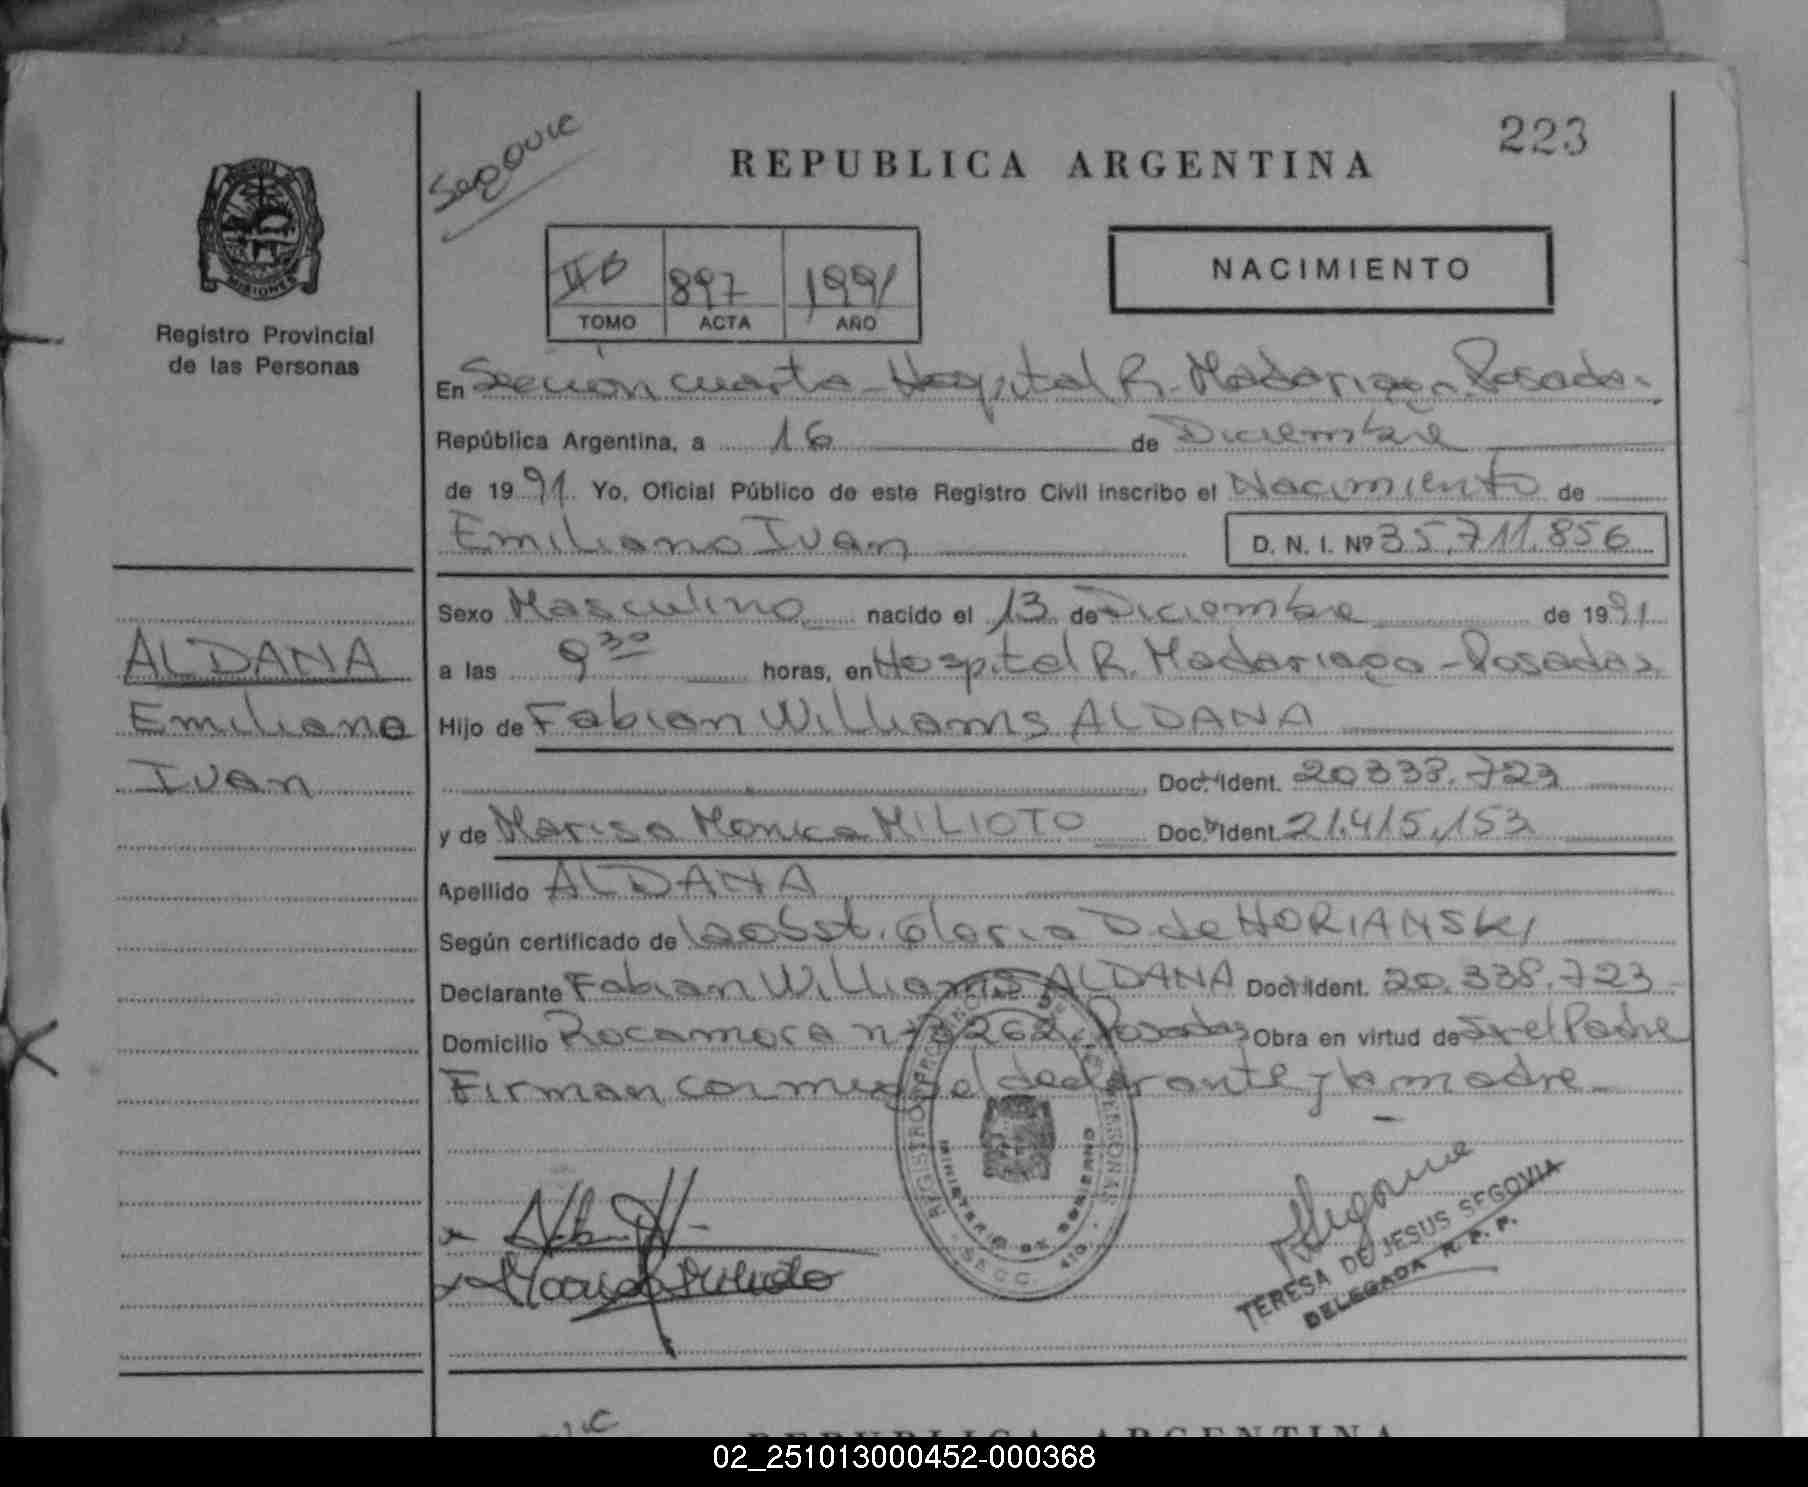 223
Segovie
REPUBLICA ARGENTINA
MISIONES
Registro Provincial
de las Personas
II B 897 1991
TOMO ACTA AÑO
NACIMIENTO
En Sección cuarta - Hospital R. Madariaga - Posadas.
República Argentina, a 16 de Diciembre
de 1991. Yo, Oficial Público de este Registro Civil inscribo el Nacimiento de
Emiliano Ivan D. N. I. Nº 35.711.856
Sexo Masculino nacido el 13 de Diciembre de 1991
ALDANA
Emiliano
Ivan
a las 9 30 horas, en Hospital R. Madariaga - Posadas
Hijo de Fabian Williams ALDANA
Doc. Ident. 20338.723
y de Marisa Monica MILIOTO Doc. Ident. 21.415.153
Apellido ALDANA
Según certificado de la obst. Gloria D. de HORIANSKI
Declarante Fabian Williams ALDANA Doc. Ident. 20.338.723
Domicilio Rocamora nº 262 Posadas Obra en virtud de Ser el Padre
Firman conmigo el declarante y la madre
REGISTRO PROVINCIAL DE LAS PERSONAS
MINISTERIO DE GOBIERNO
SECC. 4TO.
TERESA DE JESUS SEGOVIA
DELEGADA R. P. P.
REPUBLICA ARGENTINA
02_251013000452-000368